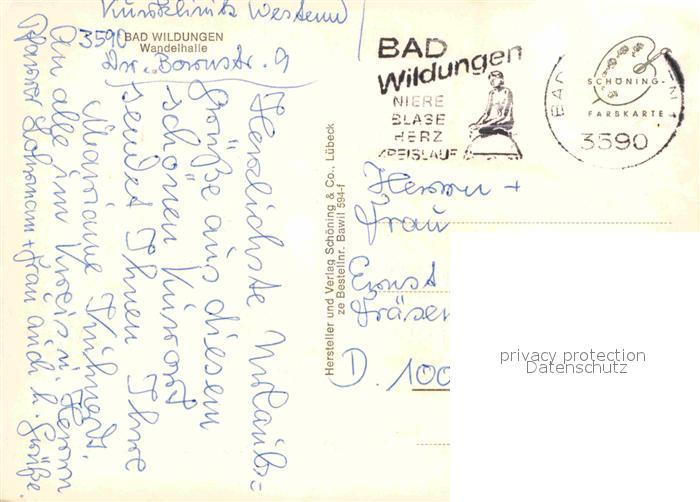 Kurklinik Westend
3590
BAD WILDUNGEN
Wandelhalle
Dr. Bornstr. 9
Herzlichste Urlaubs=
Grüße aus diesem
schönen Kurort
sendet Ihnen Ihre
Mariane Kühnert.
An alle im Kreis u. Herrn
Pfarrer Lohmann + Frau auch h. Grüße.
Hersteller und Verlag Schöning & Co., Lübeck
ze Bestellnr. Bawil 594-f
BAD
Wildungen
NIERE
BLASE
HERZ
KREISLAUF
BAD
SCHÖNING-
FARBKARTE
3590
Herrn +
Frau
Ernst
D. 100
privacy protection
Datenschutz